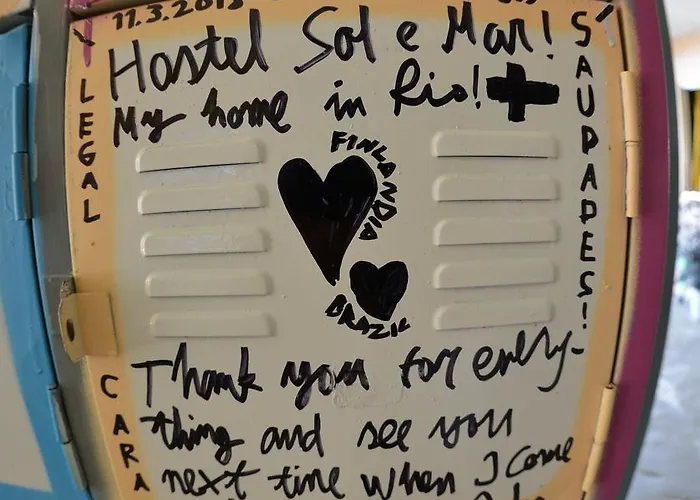 11.3.2013
Hostel Sol e Mar!
My home in Rio!
LEGAL
SAUDADES!
FINLANDIA
BRAZIL
Thank you for every-
thing and see you
next time when I come
CARA